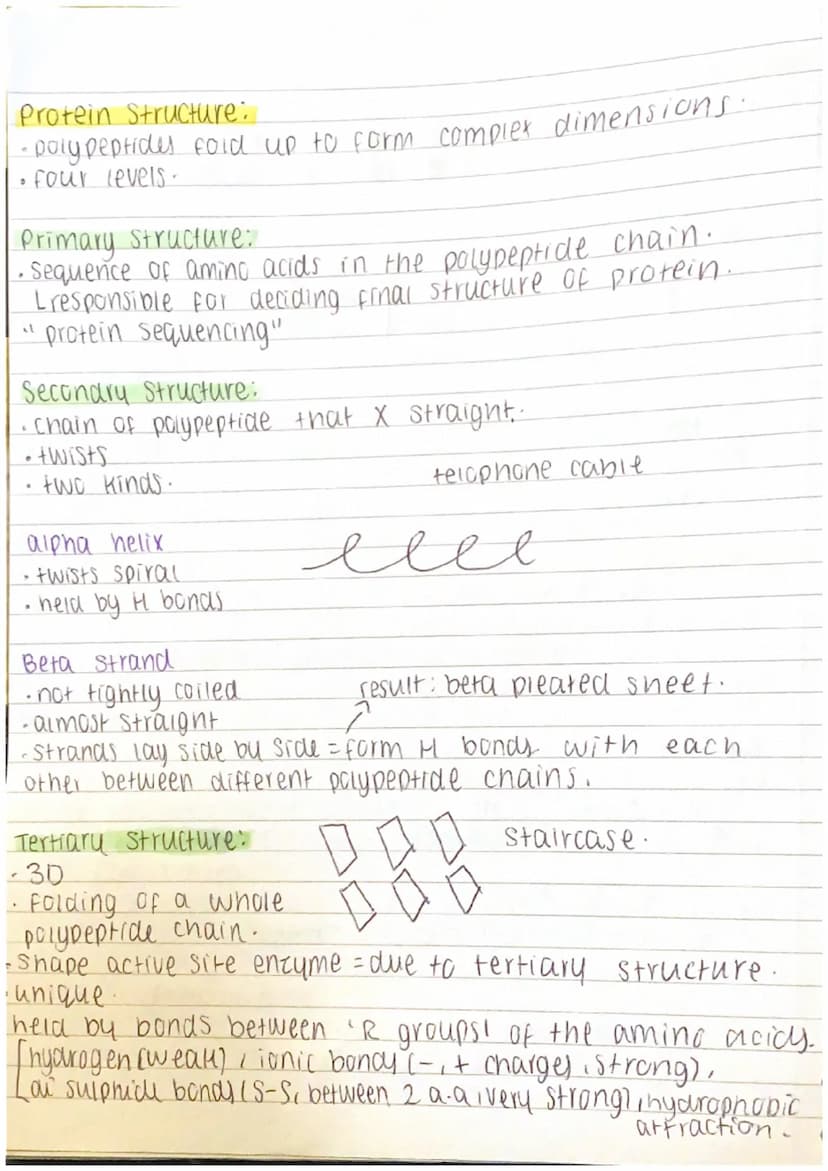 Protein Structure:
• polypeptides fold up to form complex dimensions.
• four levels.
Primary Structure:
• Sequence of amino acids in the polypeptide chain.
responsible for deciding final structure of protein.
"protein sequencing"
Secondary Structure:
• chain of polypeptide that X straight.
• twists
• two kinds.
telophone cable
alpha helix
• twists spiral
• held by H bonds
Beta strand
• not tightly coiled
result: beta pleated sheet.
• almost straight
• strands lay side by side = form H bonds with each
other between different polypeptide chains.
Tertiary structure:
staircase.
• 3D
• folding of a whole
polypeptide chain.
• shape active site enzyme = due to tertiary structure.
• unique.
held by bonds between 'R groups' of the amino acids.
hydrogen (weak), ionic bonds (-, + charges, strong),
di sulphide bonds (S-S, between 2 a.a, very strong), hydrophobic
attraction.